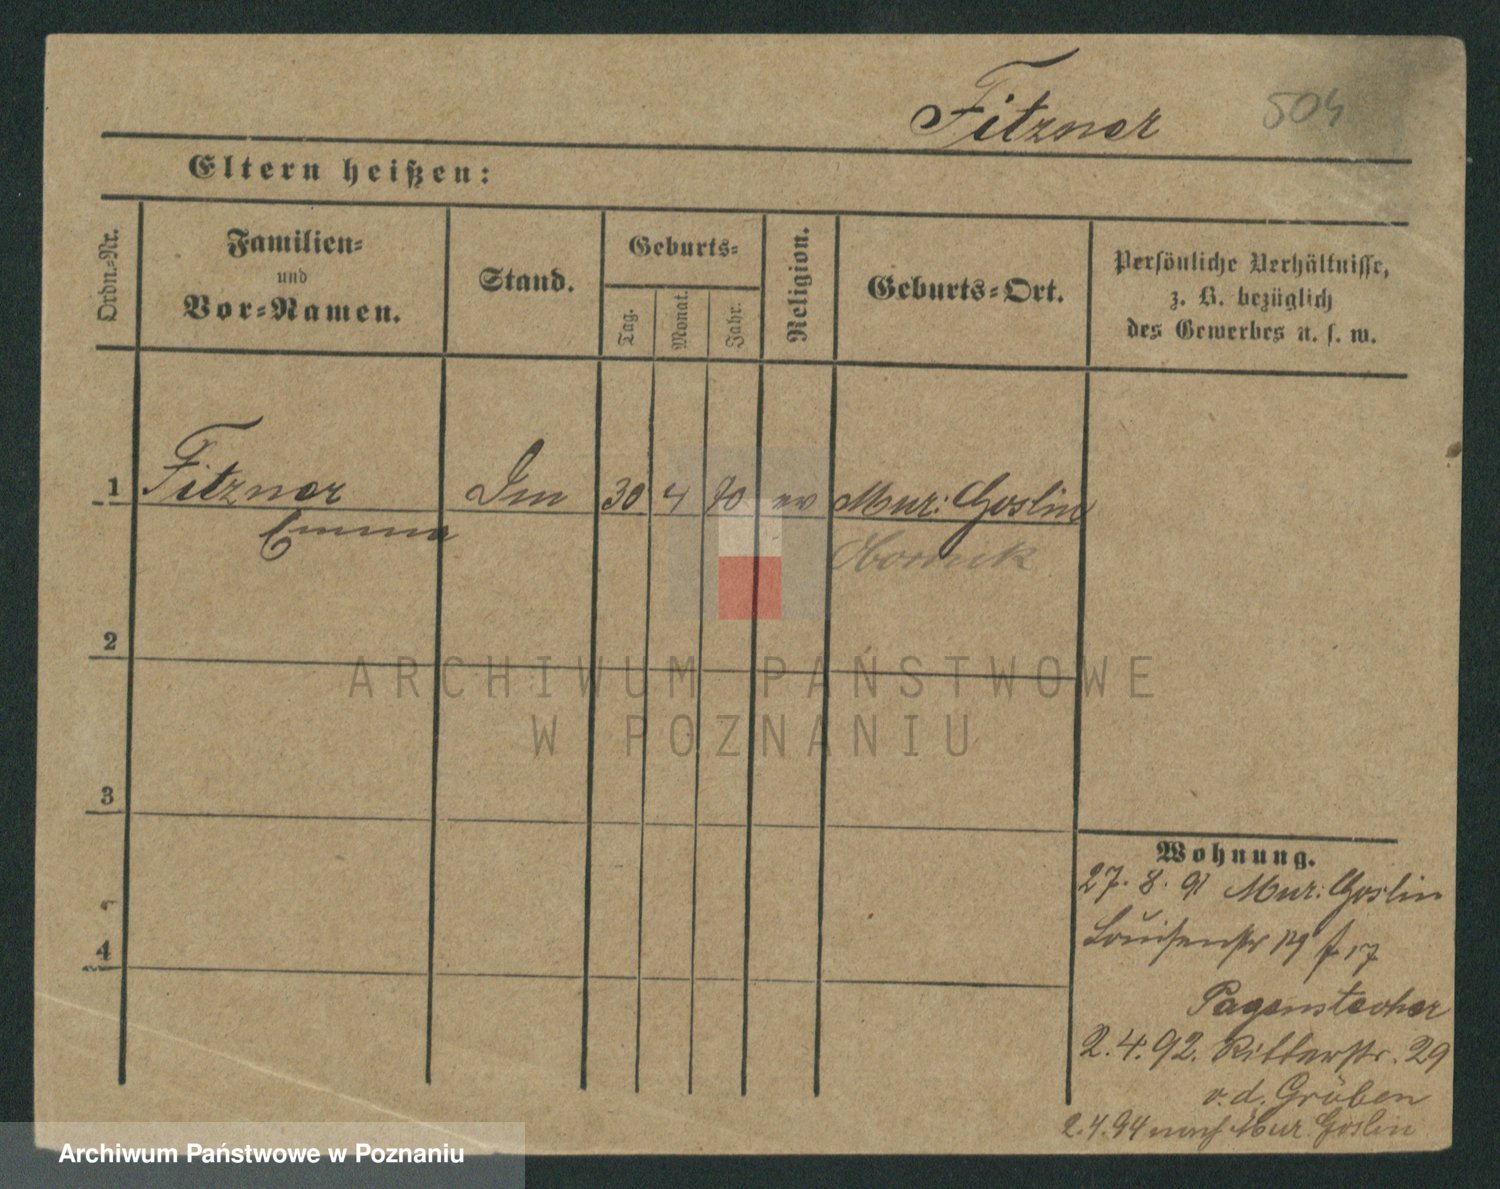 Fitzner 504
Eltern heißen:
Ordn.-Nr.
Familien-
und
Vor-Namen.
Stand.
Geburts-
Tag.
Monat.
Jahr.
Religion.
Geburts-Ort.
Persönliche Verhältnisse,
z. B. bezüglich
des Gewerbes u. s. w.
1 Fitzner 30 4 70 ev Mur: Goslin
Emma Obornik
2
3
4
ARCHIWUM PAŃSTWOWE
W POZNANIU
Wohnung.
27. 8. 91 Mur: Goslin
Louisenstr 17
Pagenstecher
2. 4. 92. Ritterstr. 29
v. d. Gröben
2. 4. 94 nach Mur Goslin
Archiwum Państwowe w Poznaniu